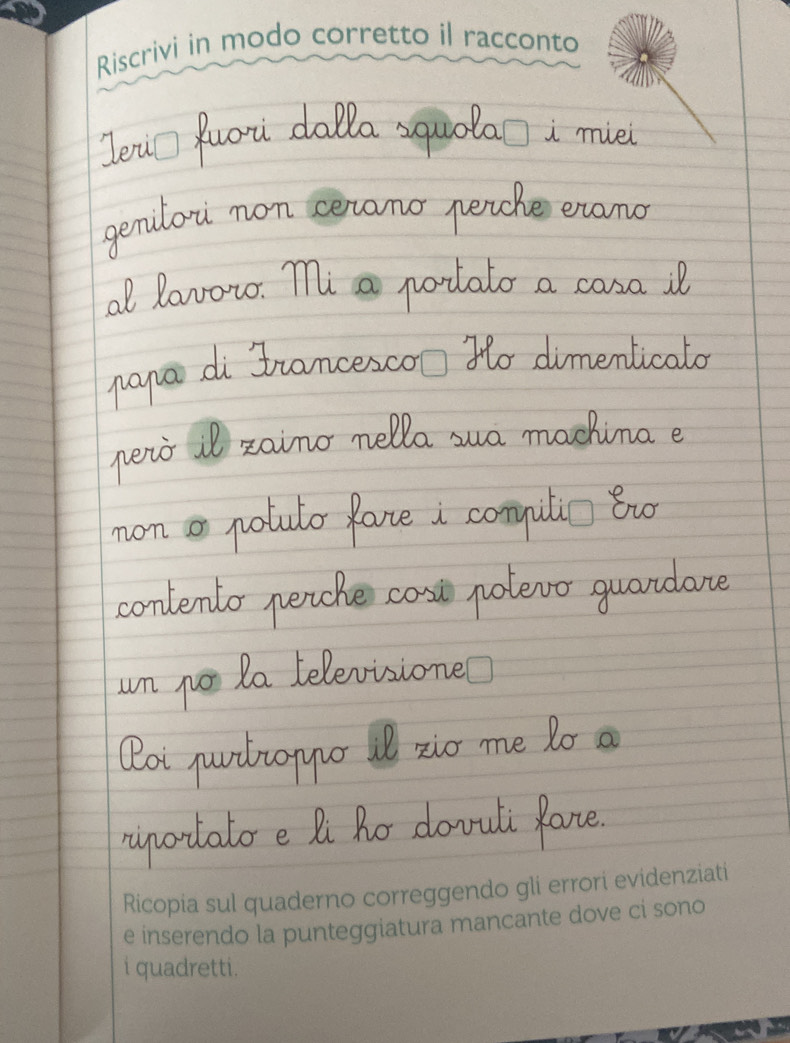 Riscrivi in modo corretto il racconto
Ieri□ fuori dalla squola□ i miei
genitori non cerano perche erano
al lavoro. Mi a portato a casa il
papa di Francesco□ Ho dimenticato
però il zaino nella sua machina e
non o potuto fare i conpiti□ Ero
contento perche cosi potevo guardare
un po la televisione□
Poi purtroppo il zio me lo a
riportato e li ho dovuti fare.
Ricopia sul quaderno correggendo gli errori evidenziati
e inserendo la punteggiatura mancante dove ci sono
i quadretti.